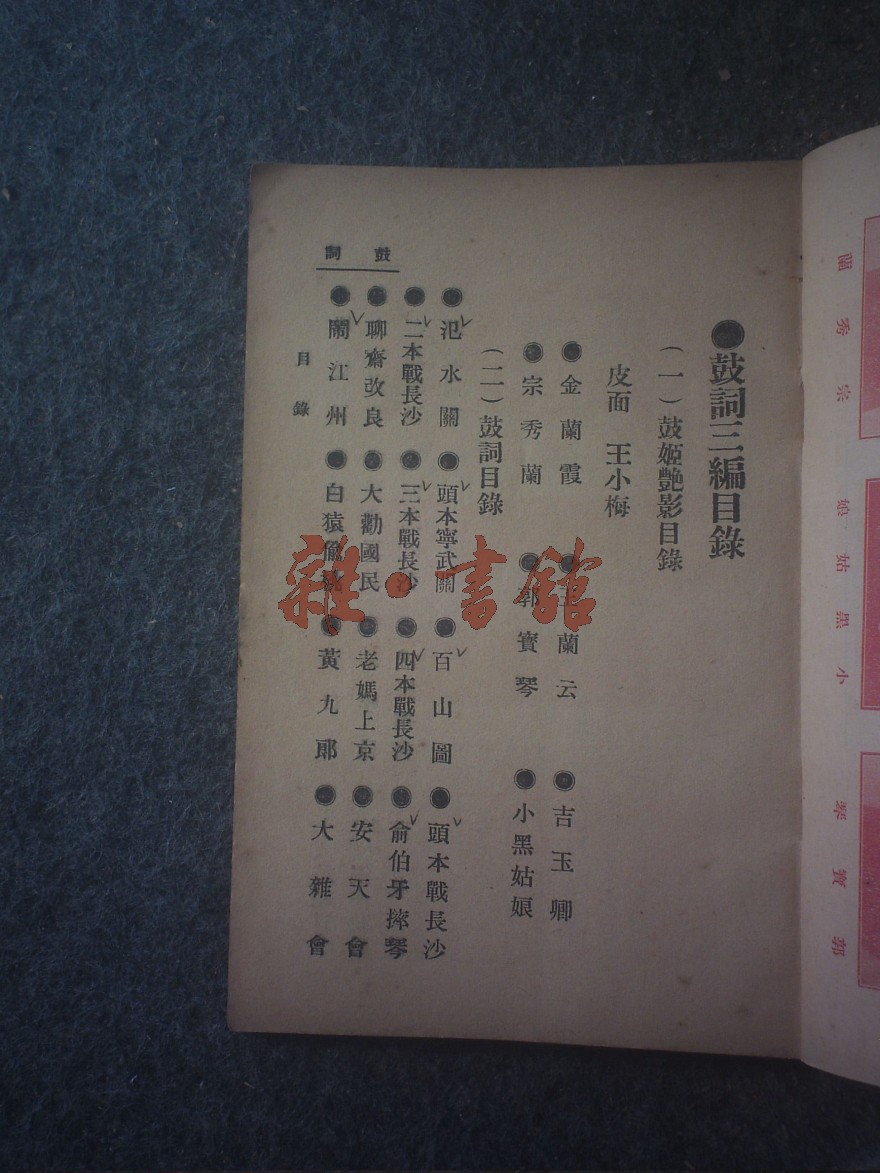 ●鼓詞三編目錄
(一)鼓姬艷影目錄
皮面 王小梅
●金蘭霞 ●王蘭云 ●吉玉卿
●宗秀蘭 ●郭寶琴 ●小黑姑娘
(二)鼓詞目錄
●汜水關 ●頭本寧武關 ●百山圖 ●頭本戰長沙
●二本戰長沙 ●三本戰長沙 ●四本戰長沙 ●俞伯牙摔琴
●聊齋改良 ●大勸國民 ●老媽上京 ●安天會
●鬧江州 ●白猿偷桃 ●黃九郎 ●大雜會
鼓詞
目錄
蘭秀宗
娘姑黑小
琴寶郭
雜·書館